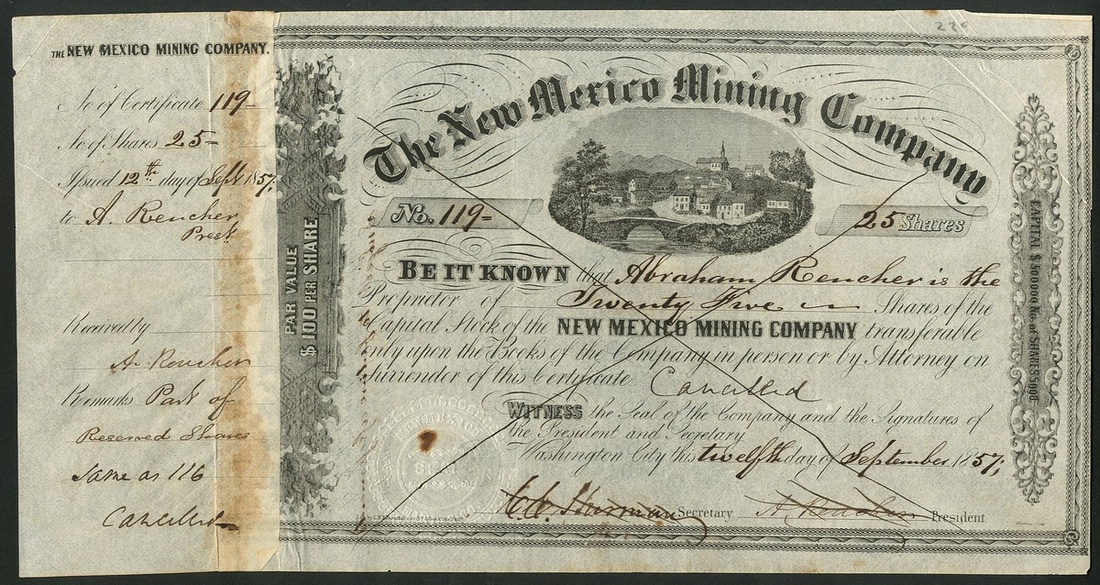 THE NEW MEXICO MINING COMPANY.
No of Certificate 119-
No of Shares 25-
Issued 12th day of Sept 1857;
to A. Rencher
Prest
Received by
A. Rencher
Remarks Part of
Reserved Shares
Same as 116
Cancelled
PAR VALUE
$ 100 PER SHARE
220
The New Mexico Mining Company
No. 119-
25 Shares
BE IT KNOWN that Abraham Rencher is the
Proprietor of Twenty Five Shares of the
Capital Stock of the NEW MEXICO MINING COMPANY transferable
only upon the Books of the Company in person or by Attorney on
surrender of this Certificate. Cancelled
WITNESS the Seal of the Company and the Signatures of
the President and Secretary
Washington City this twelfth day of September 1857;
Secretary A Rencher President
CAPITAL $ 500000 No. of SHARES 5000